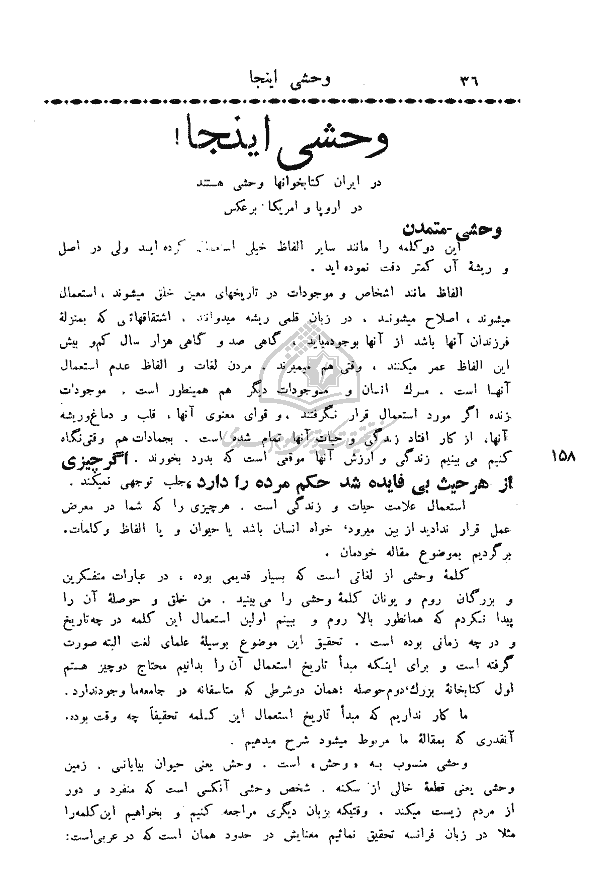 ۳۶
وحشی اینجا
وحشی اینجا!
در ایران کتابخوانها وحشی هستند
در اروپا و امریکا برعکس
وحشی-متمدن
این دوکلمه را مانند سایر الفاظ خیلی استعمال کرده اید ولی در اصل
و ریشهٔ آن کمتر دقت نموده اید .
الفاظ مانند اشخاص و موجودات در تاریخهای معین خلق میشوند ، استعمال
میشوند ، اصلاح میشوند . در زبان قلمی ریشه میدوانند . اشتقاقهائی که بمنزلهٔ
فرزندان آنها باشد از آنها بوجودمیاید . گاهی صد و گاهی هزار سال کم‌و بیش
این الفاظ عمر میکنند ، وقتی هم میمیرند . مردن لغات و الفاظ عدم استعمال
آنهـا است . مـرك انسان و مـوجودات دیگر هم همینطور است . موجودات
زنده اگر مورد استعمال قرار نگرفتند ، و قوای معنوی آنها ، قلب و دماغ‌وریشه
آنها، از کار افتاد زندگی و حیات آنها تمام شده است . بجمادات هم وقتی‌نگاه
کنیم می بینیم زندگی و ارزش آنها موقتی است که بدرد بخورند . اگرچیزی
۱۵۸
از هرحیث بی فایده شد حکم مرده را دارد، جلب توجهی نمیکند .
استعمال علامت حیات و زندگی است . هرچیزی را که شما در معرض
عمل قرار ندادید از بین میرود، خواه انسان باشد یا حیوان و یا الفاظ وکلمات.
برگردیم بموضوع مقاله خودمان .
کلمهٔ وحشی از لغاتی است که بسیار قدیمی بوده ، در عبارات متفکرین
و بزرگان روم و یونان کلمهٔ وحشی را می‌بینید . من خلق و حوصلهٔ آن را
پیدا نکردم که همانطور بالا روم و ببینم اولین استعمال این کلمه در چه‌تاریخ
و در چه زمانی بوده است . تحقیق این موضوع بوسیلهٔ علمای لغت البته صورت
گرفته است و برای اینکه مبدأ تاریخ استعمال آن را بدانیم محتاج دوچیز هستم
اول کتابخانهٔ بزرك،دوم‌حوصله ؛همان دوشرطی که متاسفانه در جامعه‌ما وجودندارد .
ما کار نداریم که مبدأ تاریخ استعمال این کـلمه تحقیقاً چه وقت بوده.
آنقدری که بمقالهٔ ما مربوط میشود شرح میدهیم .
وحشی منسوب بـه «وحش» است . وحش یعنی حیوان بیابانی . زمین
وحشی یعنی قطعهٔ خالی از سکنه . شخص وحشی آنکسی است که منفرد و دور
از مردم زیست میکند . وقتیکه بزبان دیگری مراجعه کنیم و بخواهیم این‌کلمه‌را
مثلا در زبان فرانسه تحقیق نمائیم معنایش در حدود همان است که در عربی‌است: